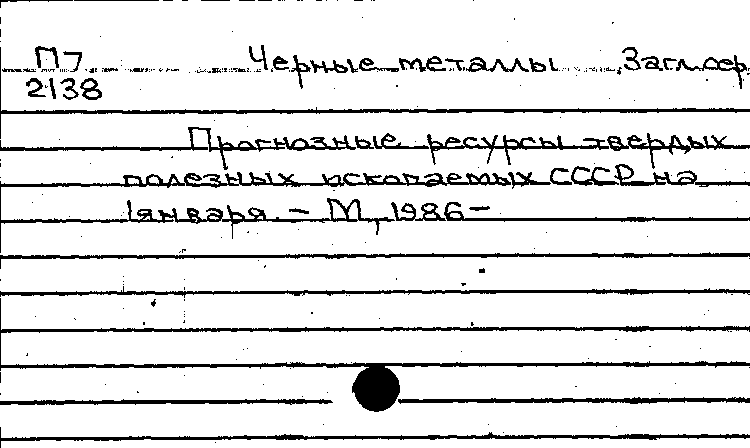 П7 Черные металлы. Загл.сер.
2138
Прогнозные ресурсы твердых
полезных ископаемых СССР на
1 января. – М, 1986–